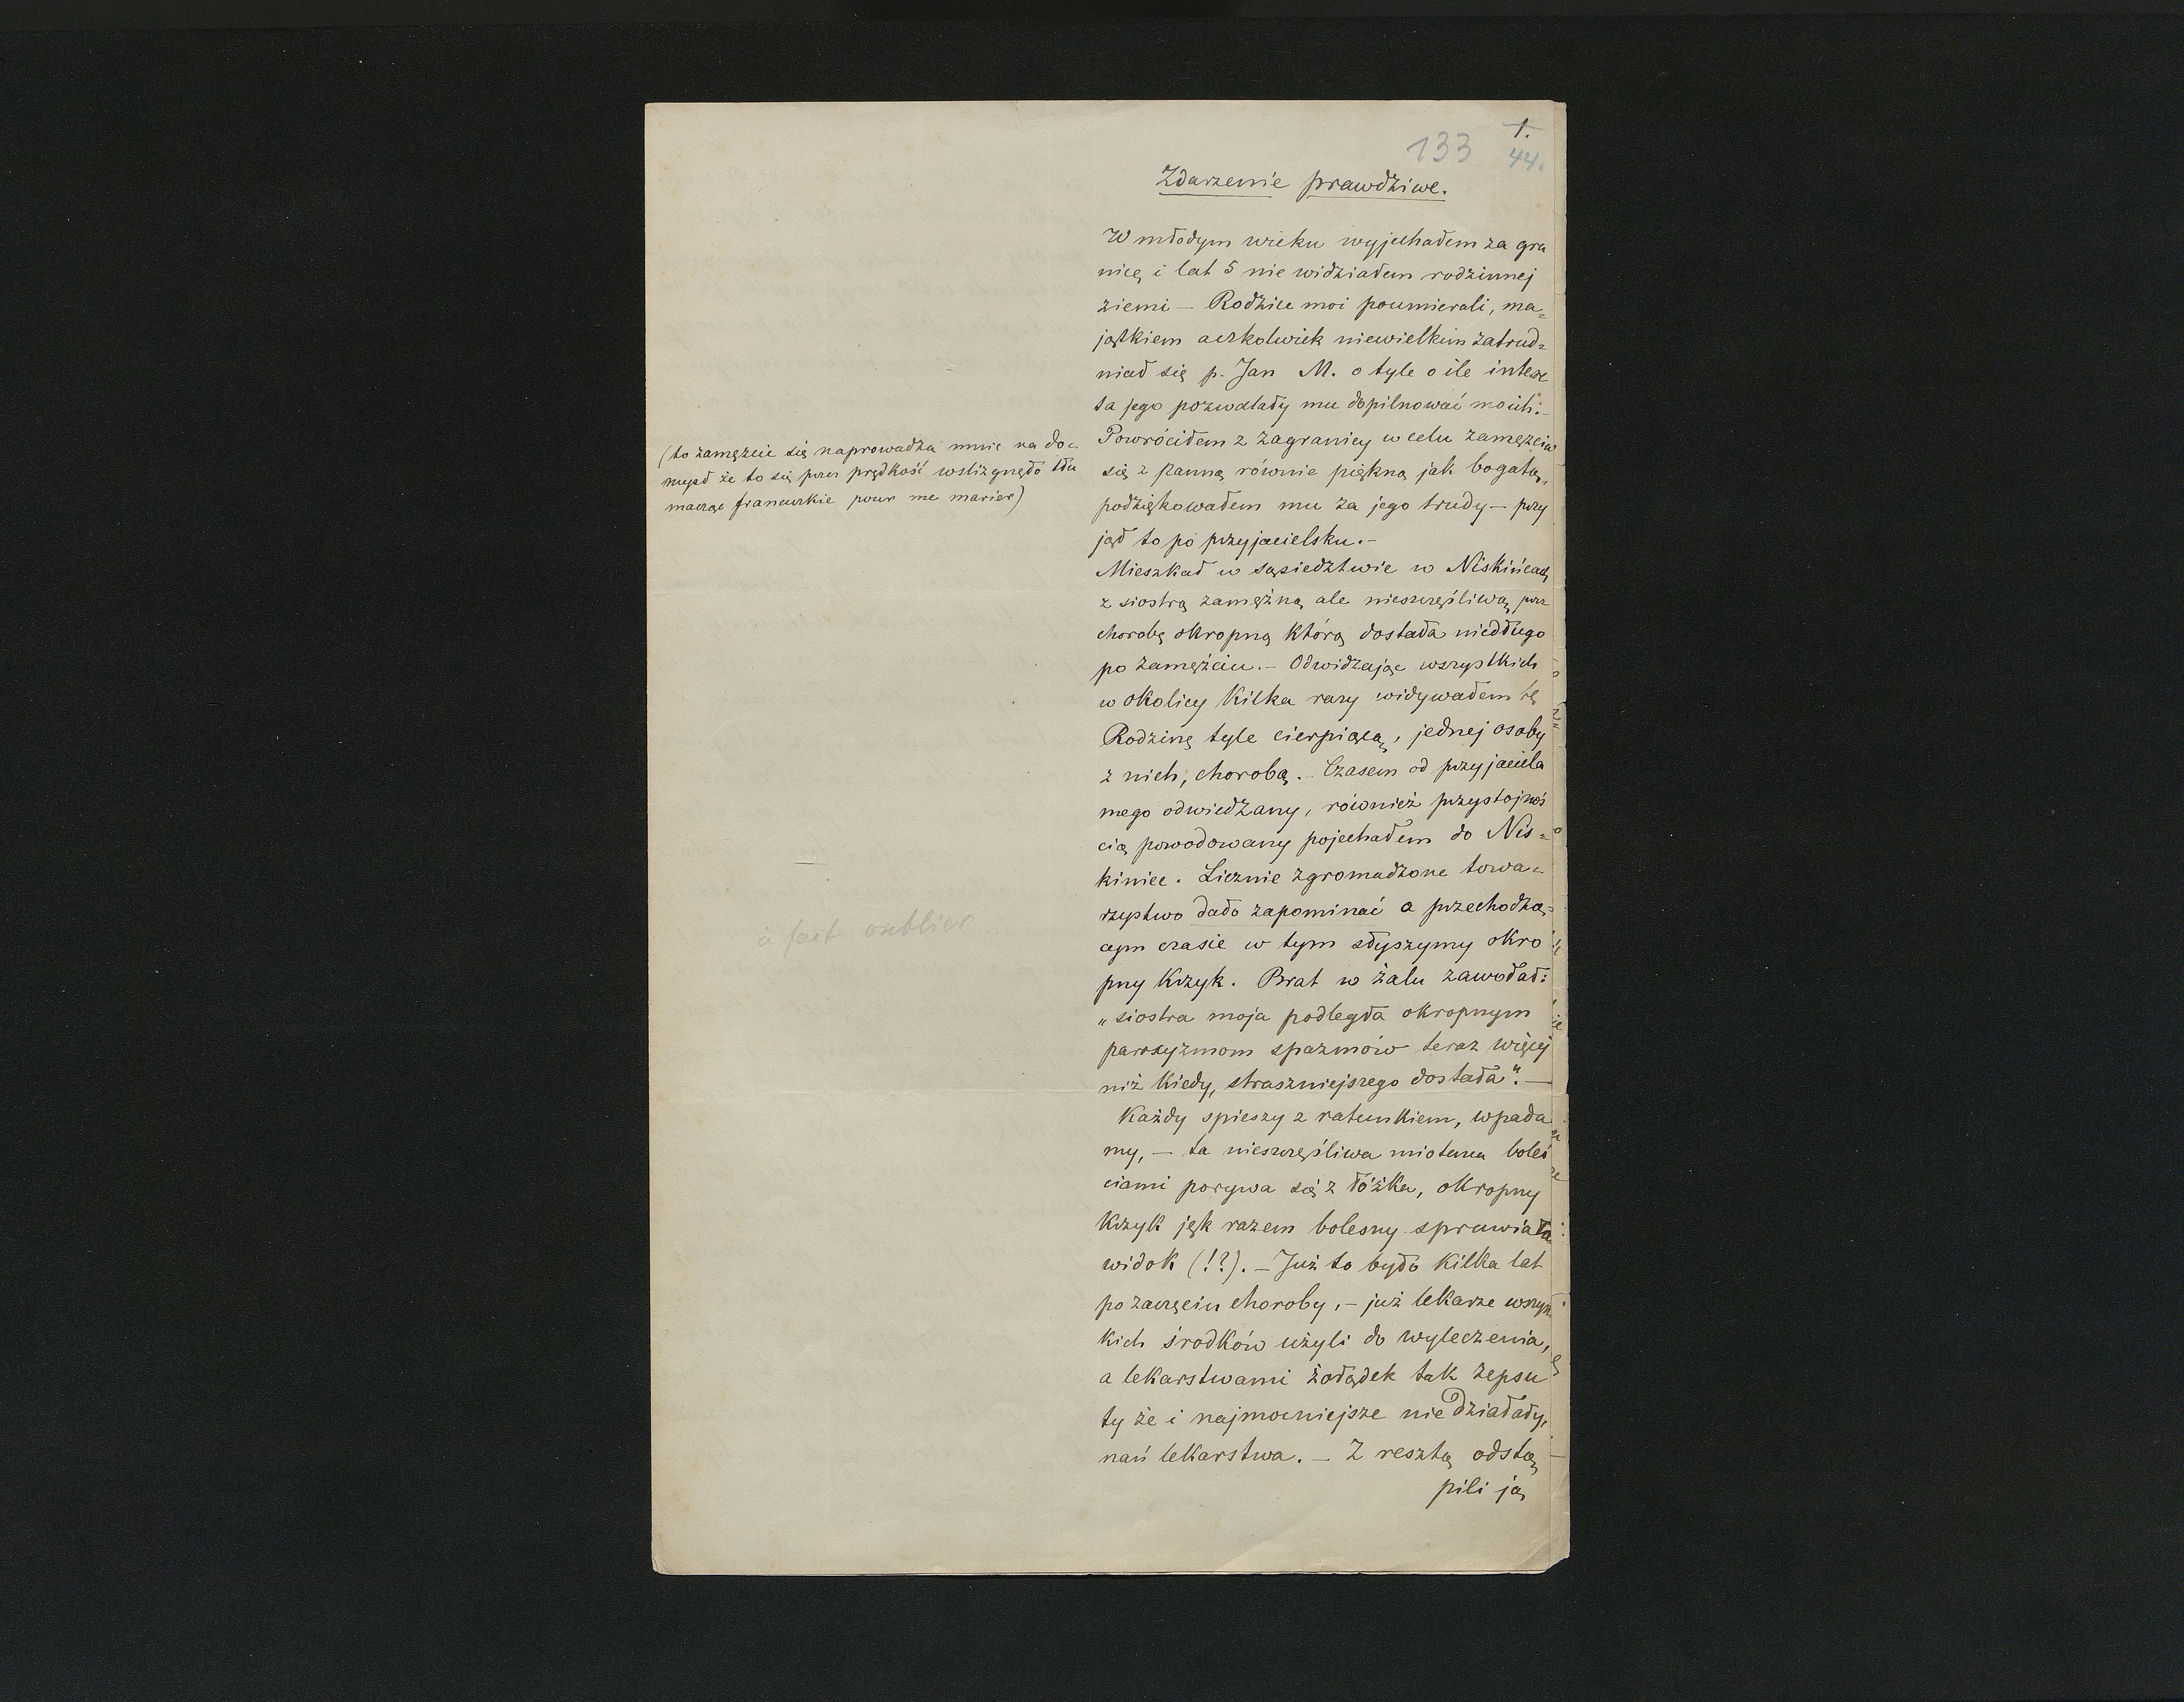 133
1.
44.
Zdarzenie prawdziwe.
W młodym wieku wyjechałem za gra
nicę i lat 5 nie widziałem rodzinnej
ziemi — Rodzice moi poumierali, ma=
jątkiem aczkolwiek niewielkim zatrud=
niał się p. Jan M. o tyle o ile intere
sa jego pozwalały mu dopilnować moich.—
Powróciłem z zagranicy w celu zamęzcia
się z panną równie piękną jak bogatą,
podziękowałem mu za jego trudy — przy
jął to po przyjacielsku.—
Mieszkał w sąsiedztwie w Niskińcach
z siostrą zamężną ale nieszczęśliwą przez
chorobę okropną którą dostała niedługo
po zamężciu.— Odwidzając wszystkich
w okolicy kilka razy widywałem tę
Rodzinę tyle cierpiącą, jednej osoby
z nich, chorobą.— Czasem od przyjaciela
mego odwiedzany, również przystojnoś
cią powodowany pojechałem do Nis=
kiniec. Licznie zgromadzone towa=
rzystwo dało zapominać o przechodzą=
cym czasie w tym słyszymy okro
pny krzyk. Brat w żalu zawołał:
„siostra moja podległa okropnym
paroxyzmom spazmów teraz więcej
niż kiedy, straszniejszego dostała". —
Każdy spieszy z ratunkiem, wpada
my, — ta nieszczęśliwa miotana boleś
ciami porywa się z łóżka, okropny
krzyk jęk razem bolesny sprawiała
widok (!?). — Już to było kilka lat
po zaczęciu choroby, — już lekarze wszyst
kich środków użyli do wyleczenia,
a lekarstwami żołądek tak zepsu
ty że i najmocniejsze nie działały,
nań lekarstwa. — Z resztą odstą
pili ją
(to zamęzcie się naprowadza mnie na do=
mysł że to się przez prędkość wslizgnęło tłu
macząc francuzkie pour me marier)
a fait oublier